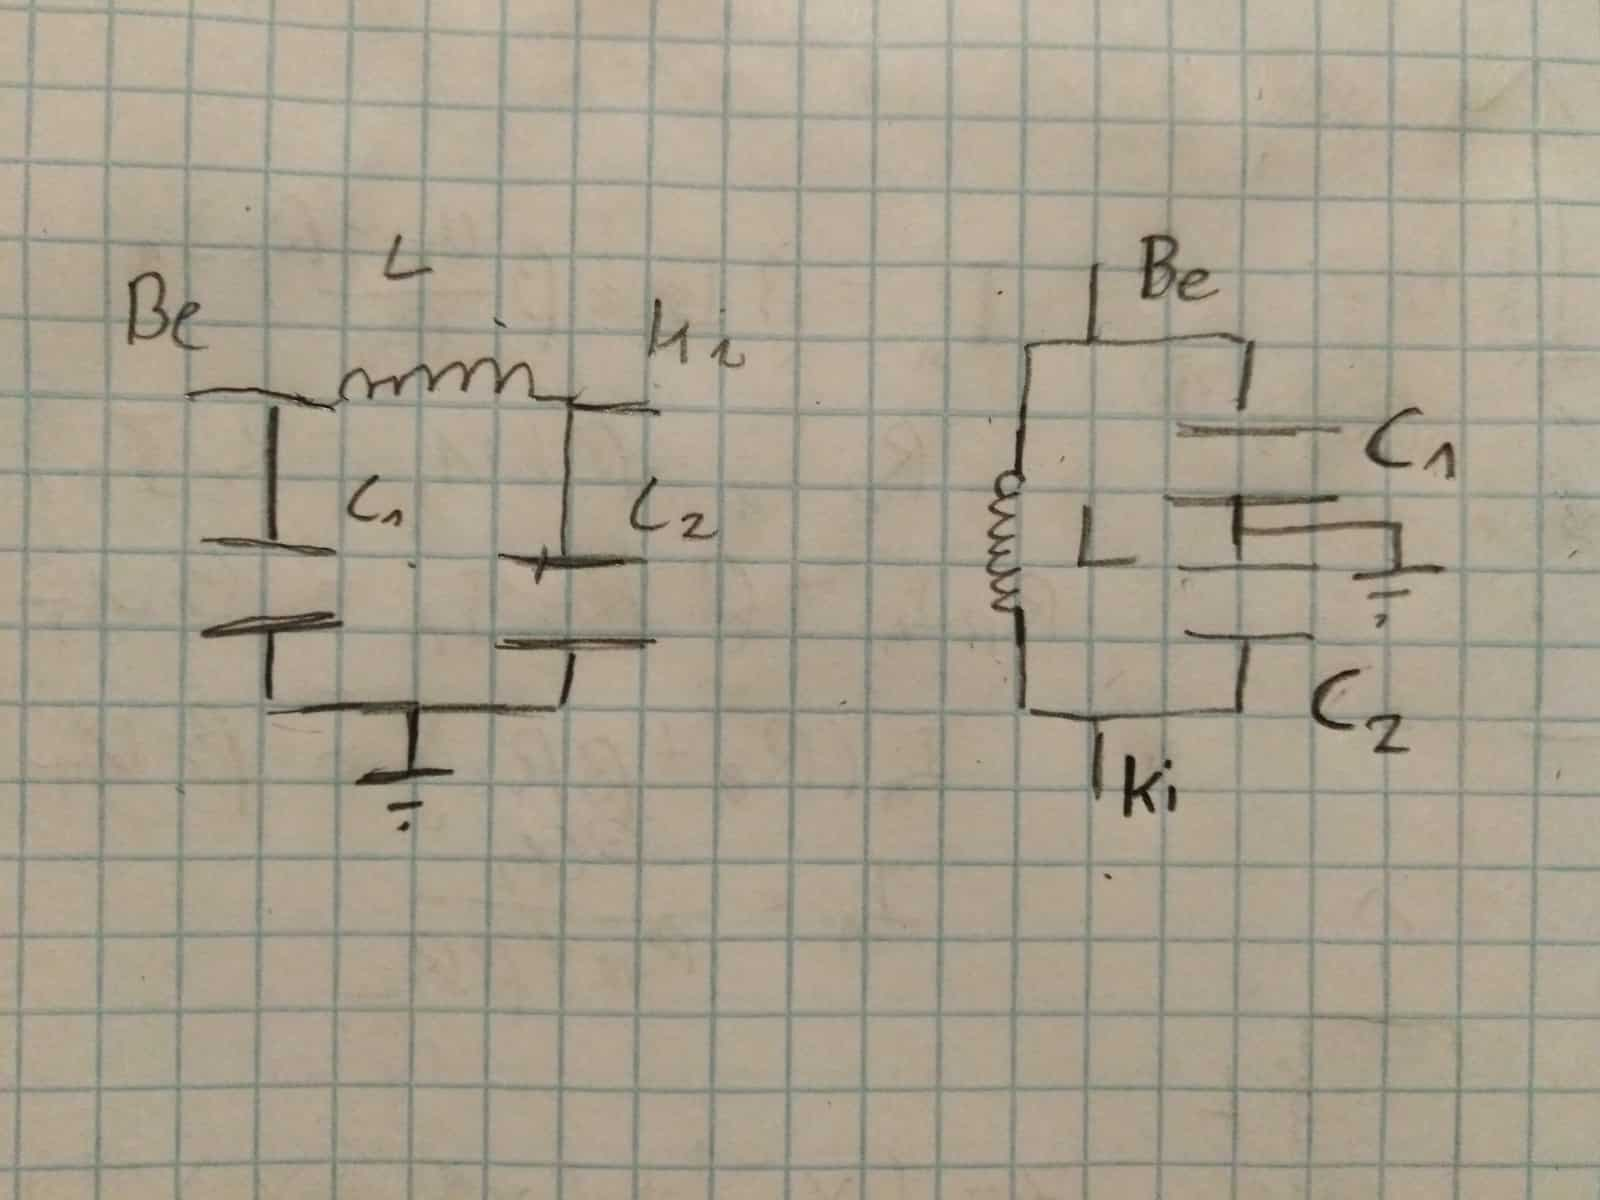 L
Be
Ki
C1
C2
Be
C1
L
C2
ki